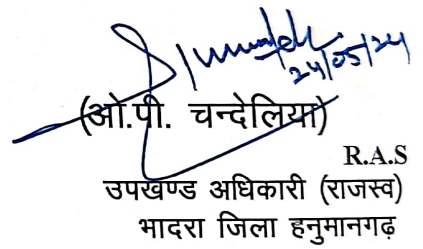 24/05/24
(ओ.पी. चन्देलिया)
R.A.S
उपखण्ड अधिकारी (राजस्व)
भादरा जिला हनुमानगढ़